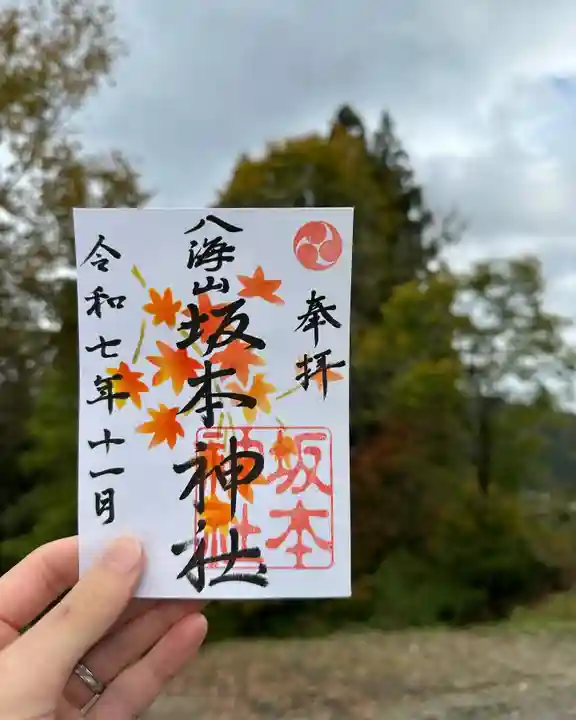 奉拝
八海山坂本神社
坂本
神社
令和七年十一月